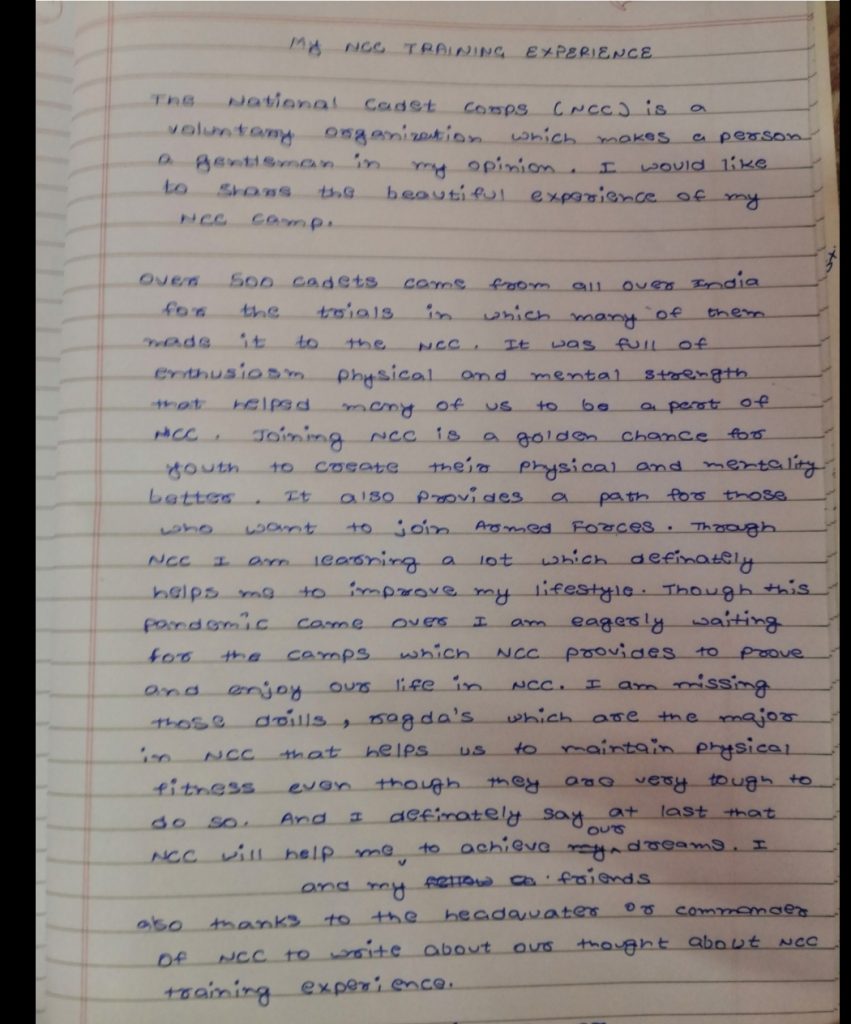 MY NCC TRAINING EXPERIENCE
The National Cadet Corps (NCC) is a
voluntary organization which makes a person
a gentleman in my opinion. I would like
to share the beautiful experience of my
NCC camp.
Over 500 cadets came from all over India
for the trials in which many of them
made it to the NCC. It was full of
enthusiasm physical and mental strength
that helped many of us to be a part of
NCC. Joining NCC is a golden chance for
youth to create their physical and mentality
better. It also provides a path for those
who want to join Armed Forces. Through
NCC I am learning a lot which definately
helps me to improve my lifestyle. Though this
pandemic came over I am eagerly waiting
for the camps which NCC provides to prove
and enjoy our life in NCC. I am missing
those drills, ragda's which are the major
in NCC that helps us to maintain physical
fitness even though they are very tough to
do so. And I definately say at last that
our
NCC will help me, to achieve my dreams. I
and my fellow friends
also thanks to the headquater or commander
of NCC to write about our thought about NCC
training experience.